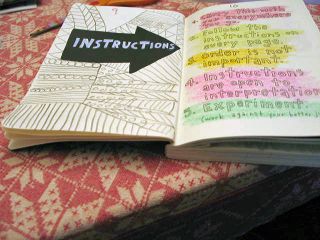 9
INSTRUCTIONS
10
1. Carry this with
you everywhere
you go.
2. Follow the
instructions on
every page.
3. Order is not
important.
4. Instructions
are open to
interpretation
5. Experiment.
(work against your better j